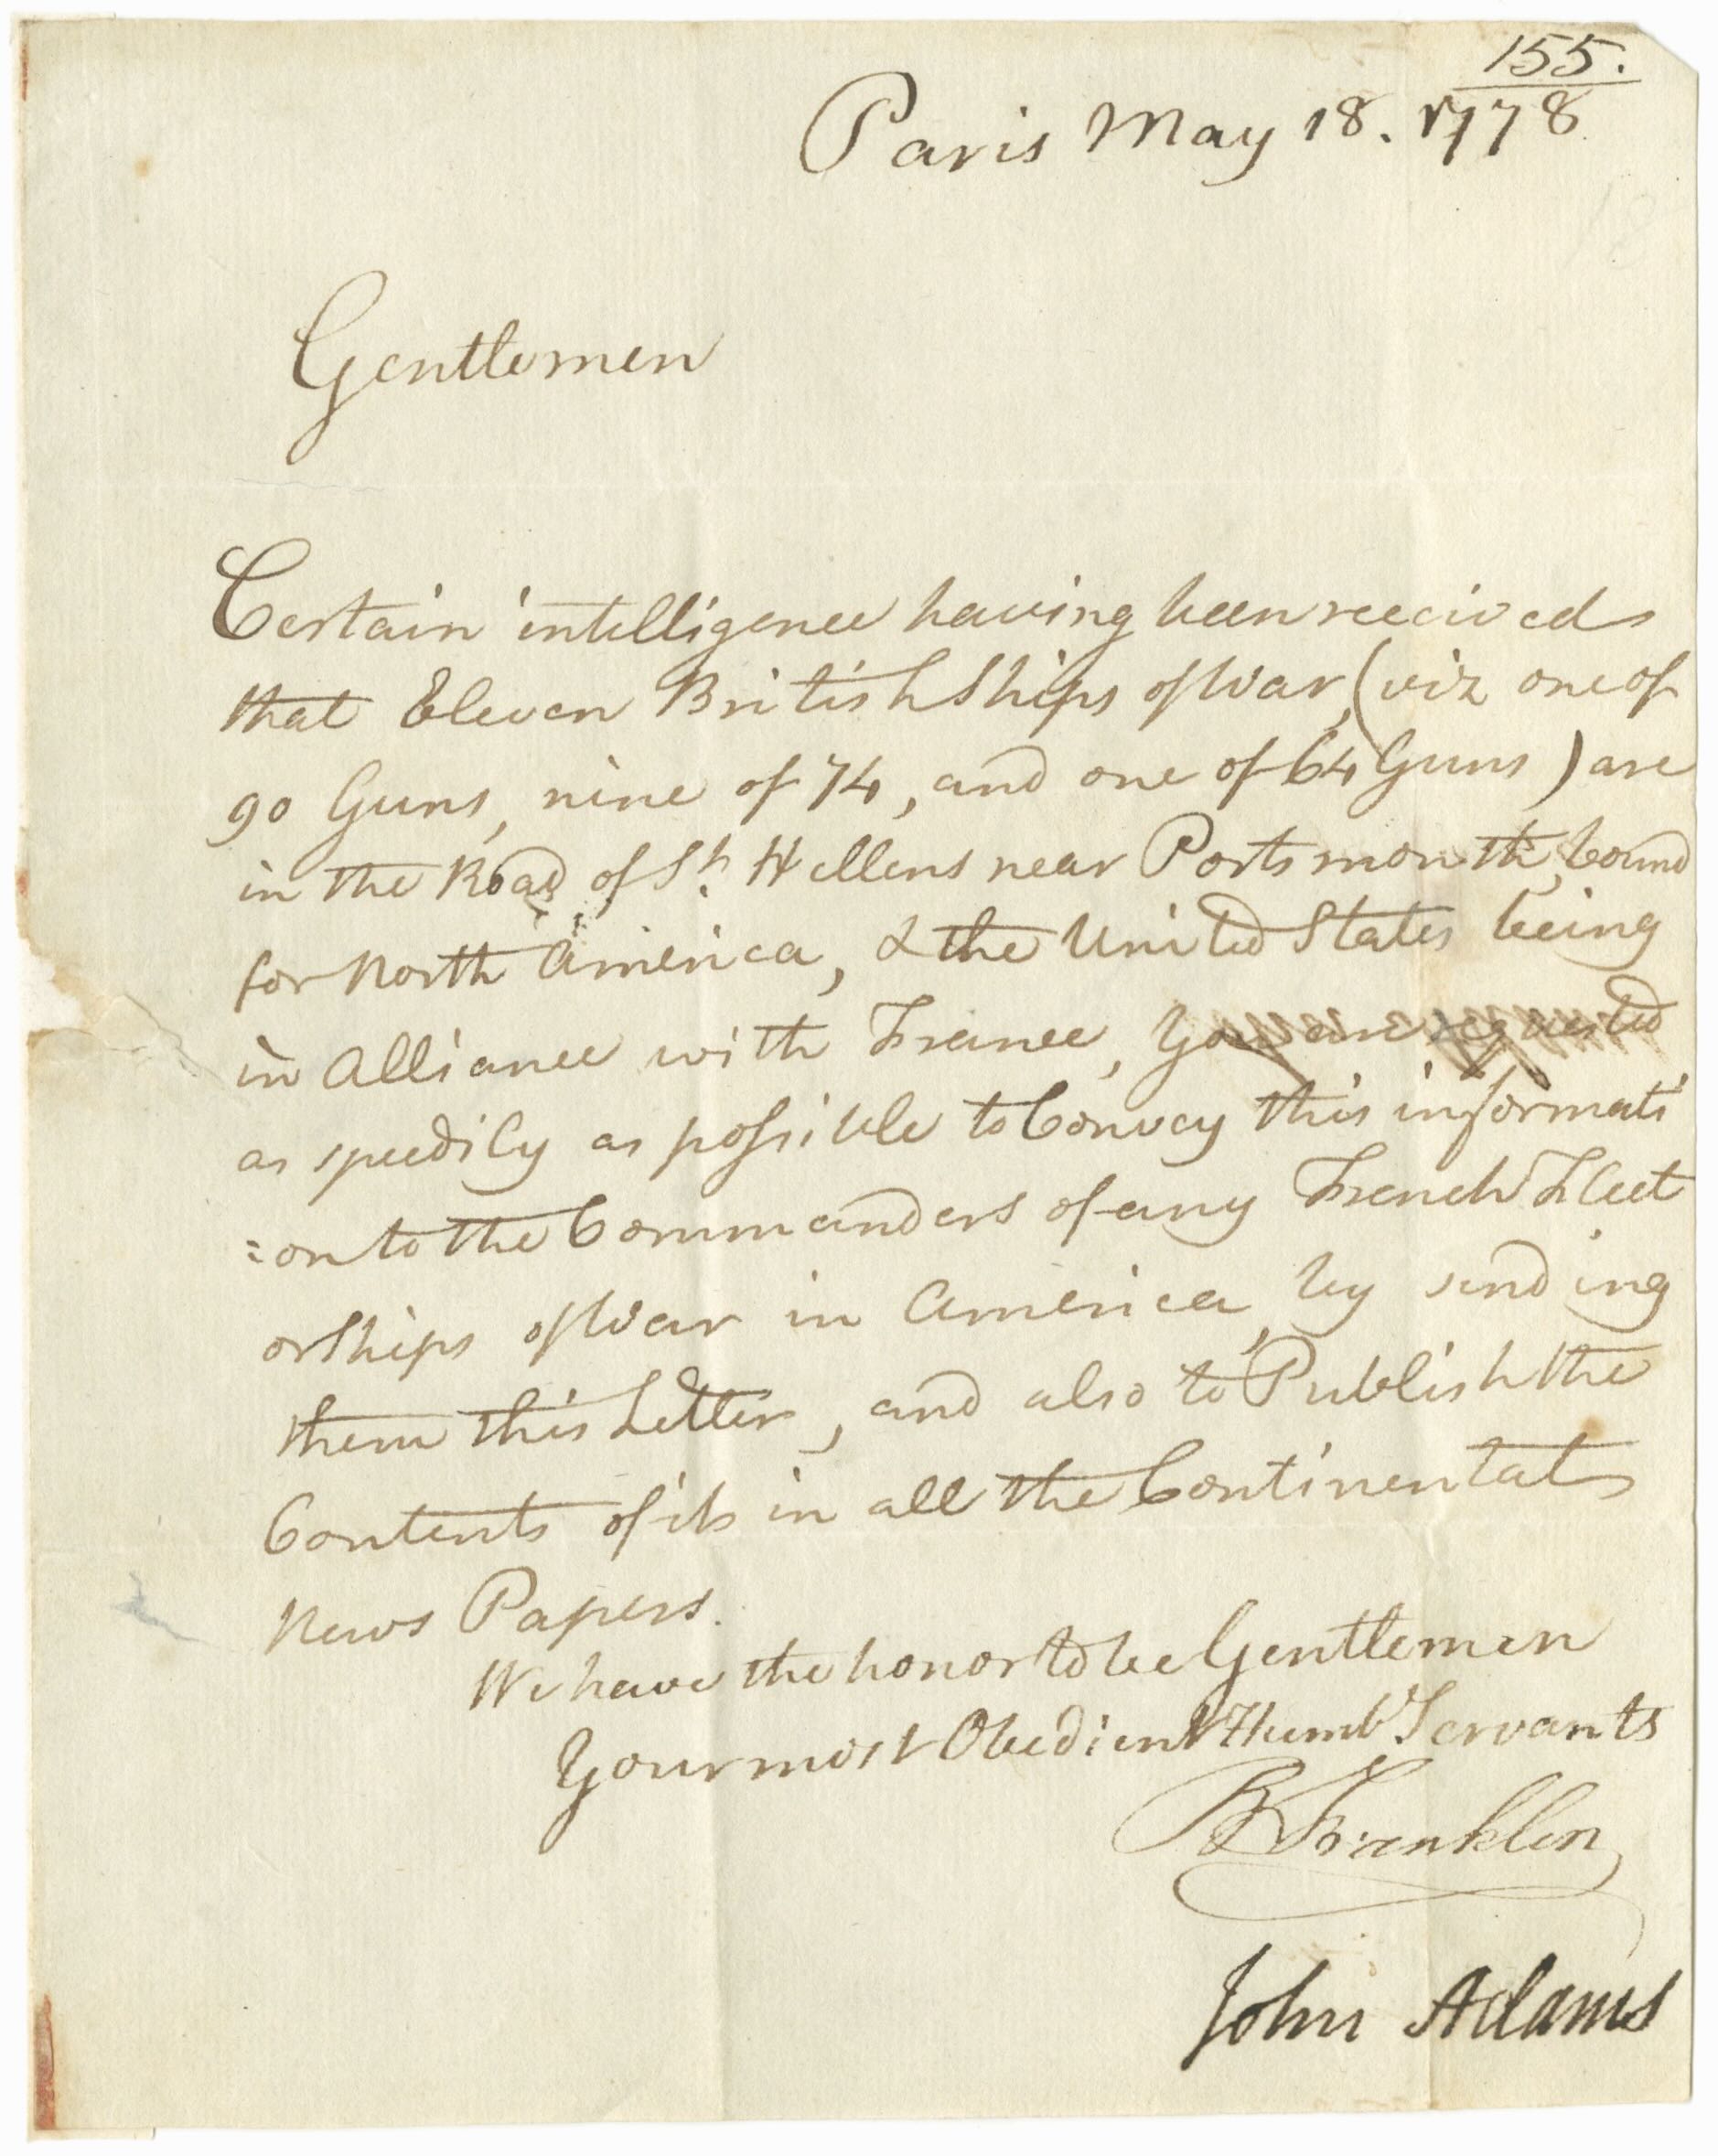 155.
Paris May 18. 1778
Gentlemen
Certain intelligence having been received
that Eleven British Ships of War, (viz one of
90 Guns, nine of 74, and one of 64 Guns) are
in the Road of St. Hellens near Portsmouth, bound
for North America, & the United States being
in Alliance with France, You are requested
as speedily as possible to Convey this informati
=on to the Commanders of any French Fleet
or Ships of War in America, by sending
them this Letter, and also to Publish the
Contents of it in all the Continental
News Papers.
We have the honor to be Gentlemen
Your most Obedient Humbl Servants
B Franklin
John Adams